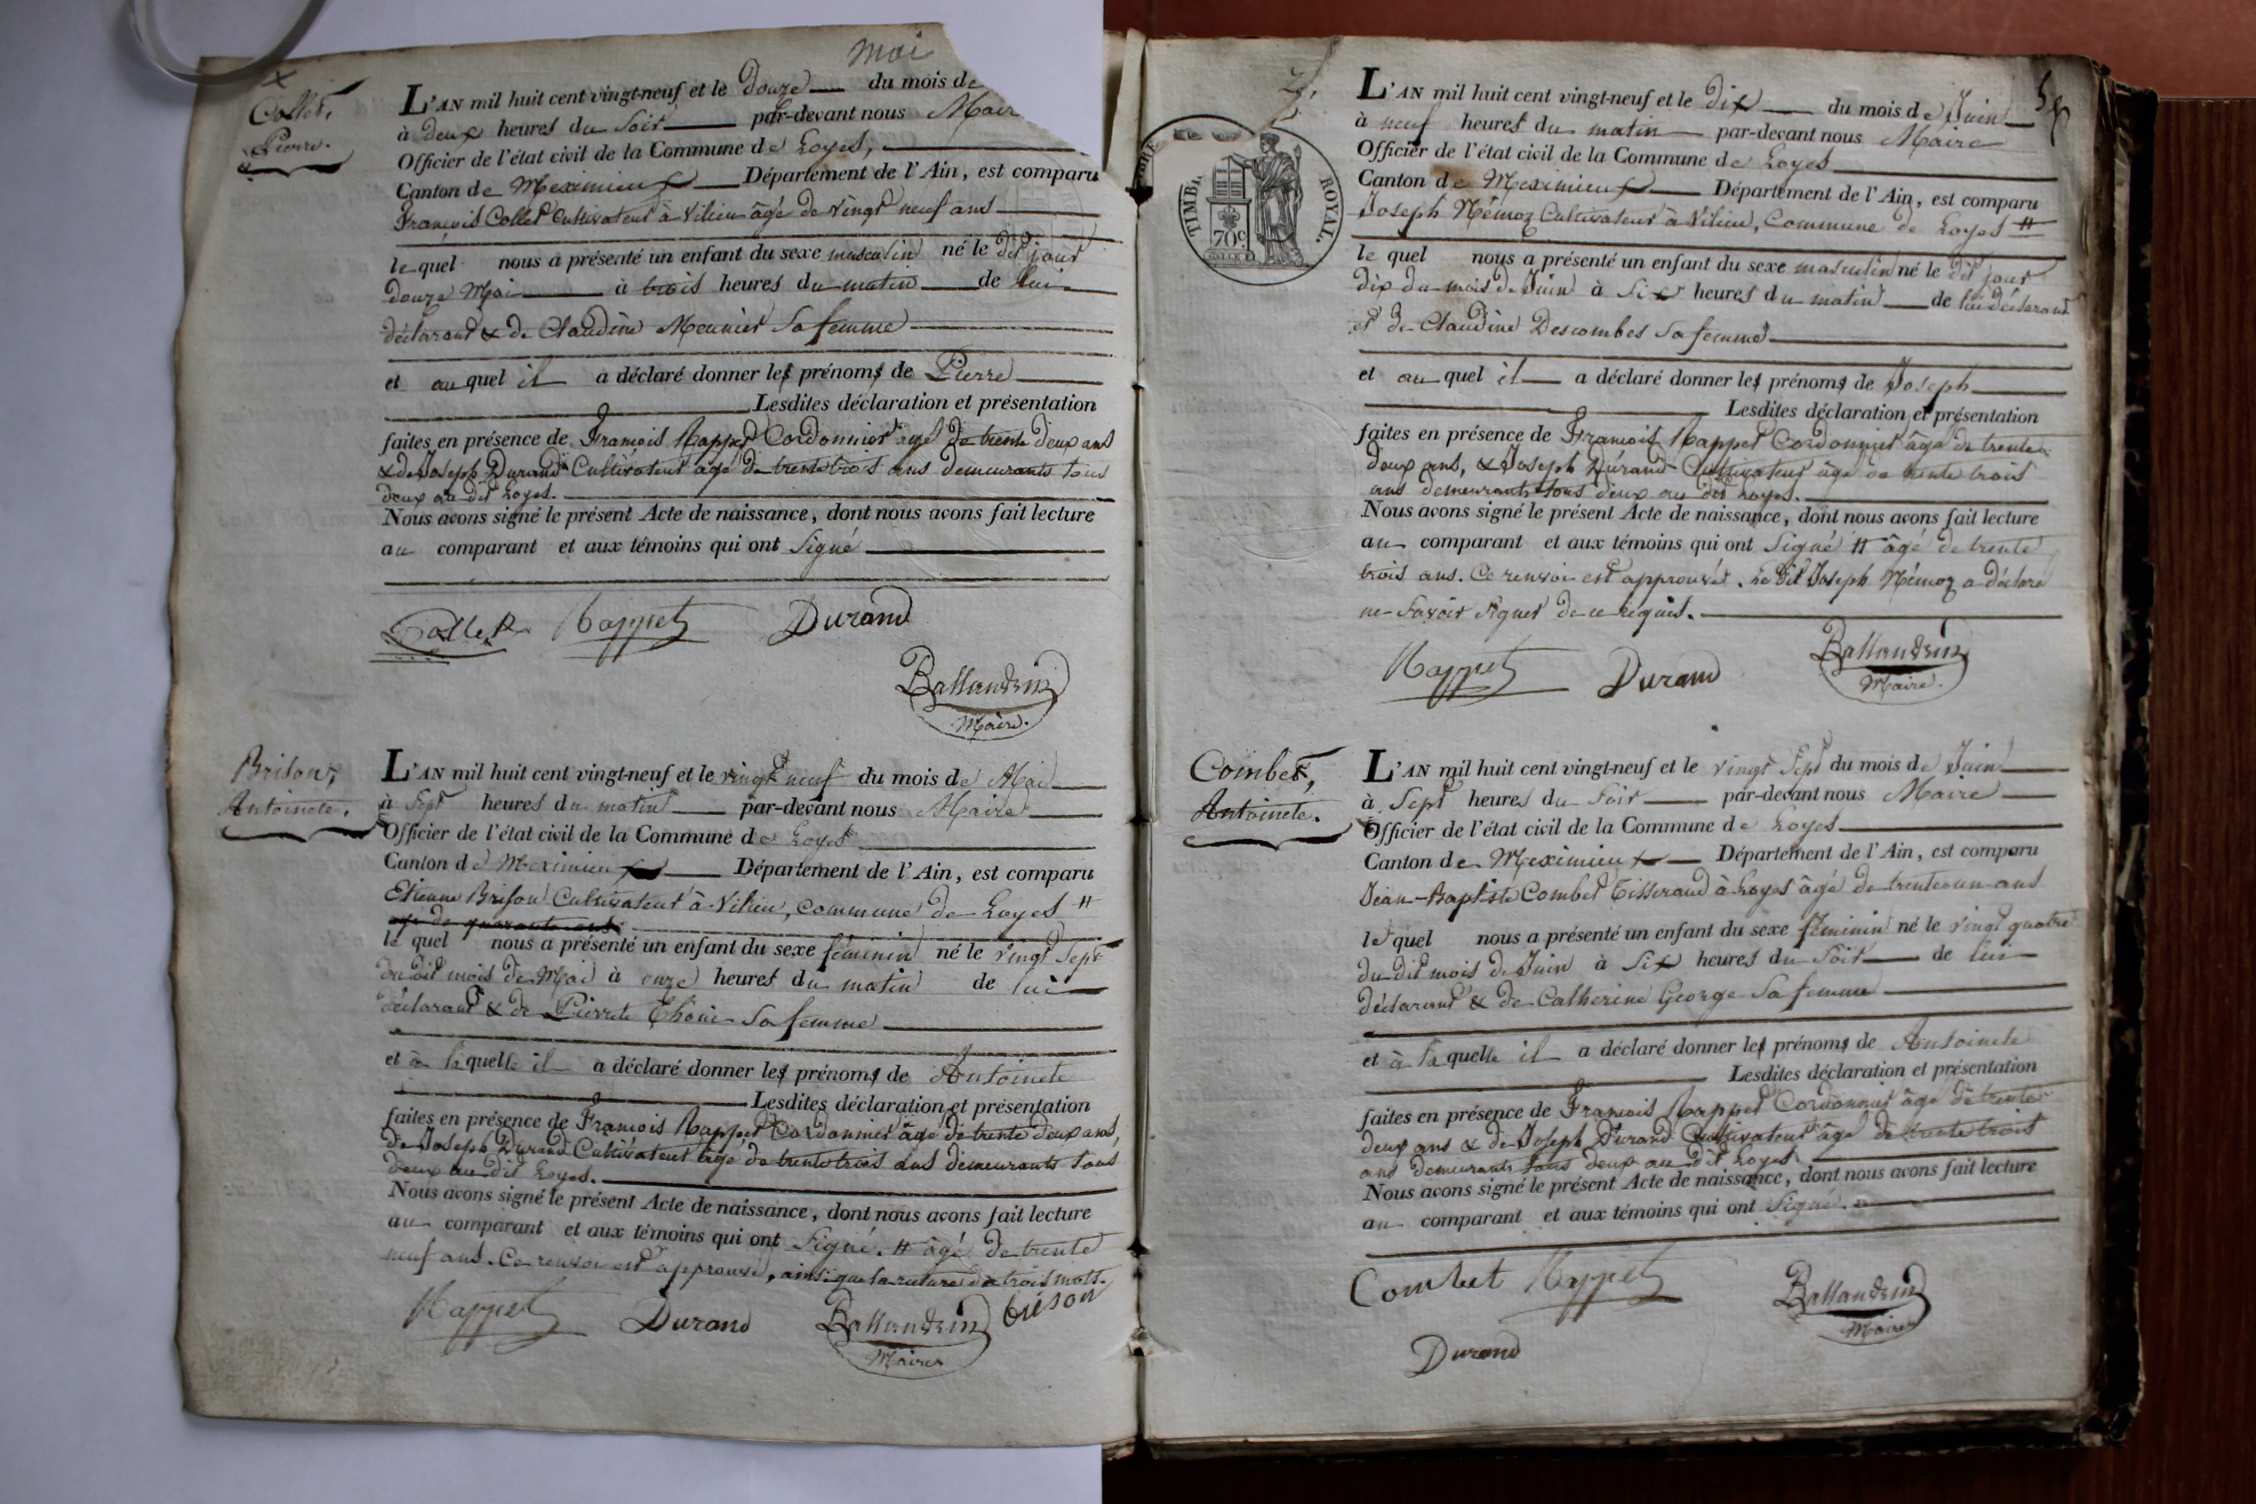 mai
Collet,
Pierre.
L'AN mil huit cent vingt-neuf et le douze du mois de
à deux heures du soir par-devant nous Mair
Officier de l'état civil de la Commune de Loyes,
Canton de Meximieux Département de l'Ain, est comparu
François Collet Cultivateur à Vilieu âgé de vingt neuf ans
le quel nous a présenté un enfant du sexe masculin né le dit jour
douze Mai à trois heures du matin de lui
déclarant & de Claudine Meunier sa femme
et au quel il a déclaré donner les prénoms de Pierre
Lesdites déclaration et présentation
faites en présence de François Rappet Cordonnier âgé de trente deux ans
& de Joseph Durand Cultivateur âgé de trente trois ans demeurants tous
deux au dit Loyes.
Nous avons signé le présent Acte de naissance, dont nous avons fait lecture
au comparant et aux témoins qui ont signé
Collet Rappet Durand
Ballandrin
Maire.
Brison,
Antoinete.
L'AN mil huit cent vingt-neuf et le vingt neuf du mois de Mai
à sept heures du matin par-devant nous Maire
Officier de l'état civil de la Commune de Loyes
Canton de Meximieux Département de l'Ain, est comparu
Etienne Brison Cultivateur à Vilieu, commune de Loyes #
âgé de quarante ans
le quel nous a présenté un enfant du sexe féminin né le vingt sept
du dit mois de Mai à onze heures du matin de lui
déclarant & de Pierrete sa femme
et à la quelle il a déclaré donner les prénoms de Antoinete
Lesdites déclaration et présentation
faites en présence de François Rappet Cordonnier âgé de trente deux ans,
de Joseph Durand Cultivateur âgé de trente trois ans demeurants tous
deux au dit Loyes.
Nous avons signé le présent Acte de naissance, dont nous avons fait lecture
au comparant et aux témoins qui ont signé. # âgé de trente
neuf ans. Ce renvoi est approuvé, ainsi que la rature de trois mots.
Rappet Durand Ballandrin brison
Maire
TIMBRE ROYAL.
70c
L'AN mil huit cent vingt-neuf et le dix du mois de Juin
à neuf heures du matin par-devant nous Maire
Officier de l'état civil de la Commune de Loyes
Canton de Meximieux Département de l'Ain, est comparu
Joseph Némoz Cultivateur à Vilieu, Commune de Loyes #
le quel nous a présenté un enfant du sexe masculin né le dit jour
dix du mois de Juin à six heures du matin de lui déclarant
et de Claudine Descombes sa femme
et au quel il a déclaré donner les prénoms de Joseph
Lesdites déclaration et présentation
faites en présence de François Rappet Cordonnier âgé de trente
deux ans, & Joseph Durand Cultivateur âgé de trente trois
ans demeurants tous deux au dit Loyes.
Nous avons signé le présent Acte de naissance, dont nous avons fait lecture
au comparant et aux témoins qui ont signé # âgé de trente
trois ans. Ce renvoi est approuvé. Le dit Joseph Némoz a déclaré
ne savoir signer de ce requis.
Rappet Durand Ballandrin
Maire.
Combet,
Antoinete.
L'AN mil huit cent vingt-neuf et le vingt sept du mois de Juin
à sept heures du soir par-devant nous Maire
Officier de l'état civil de la Commune de Loyes
Canton de Meximieux Département de l'Ain, est comparu
Jean-Baptiste Combet Tisserand à Loyes âgé de trente un ans
le quel nous a présenté un enfant du sexe féminin né le vingt quatre
du dit mois de Juin à six heures du soir de lui
déclarant & de Catherine George sa femme
et à la quelle il a déclaré donner les prénoms de Antoinete
Lesdites déclaration et présentation
faites en présence de François Rappet Cordonnier âgé de trente
deux ans & de Joseph Durand Cultivateur âgé de trente trois
ans demeurants tous deux au dit Loyes
Nous avons signé le présent Acte de naissance, dont nous avons fait lecture
au comparant et aux témoins qui ont signé.
Combet Rappet Ballandrin
Maire
Durand